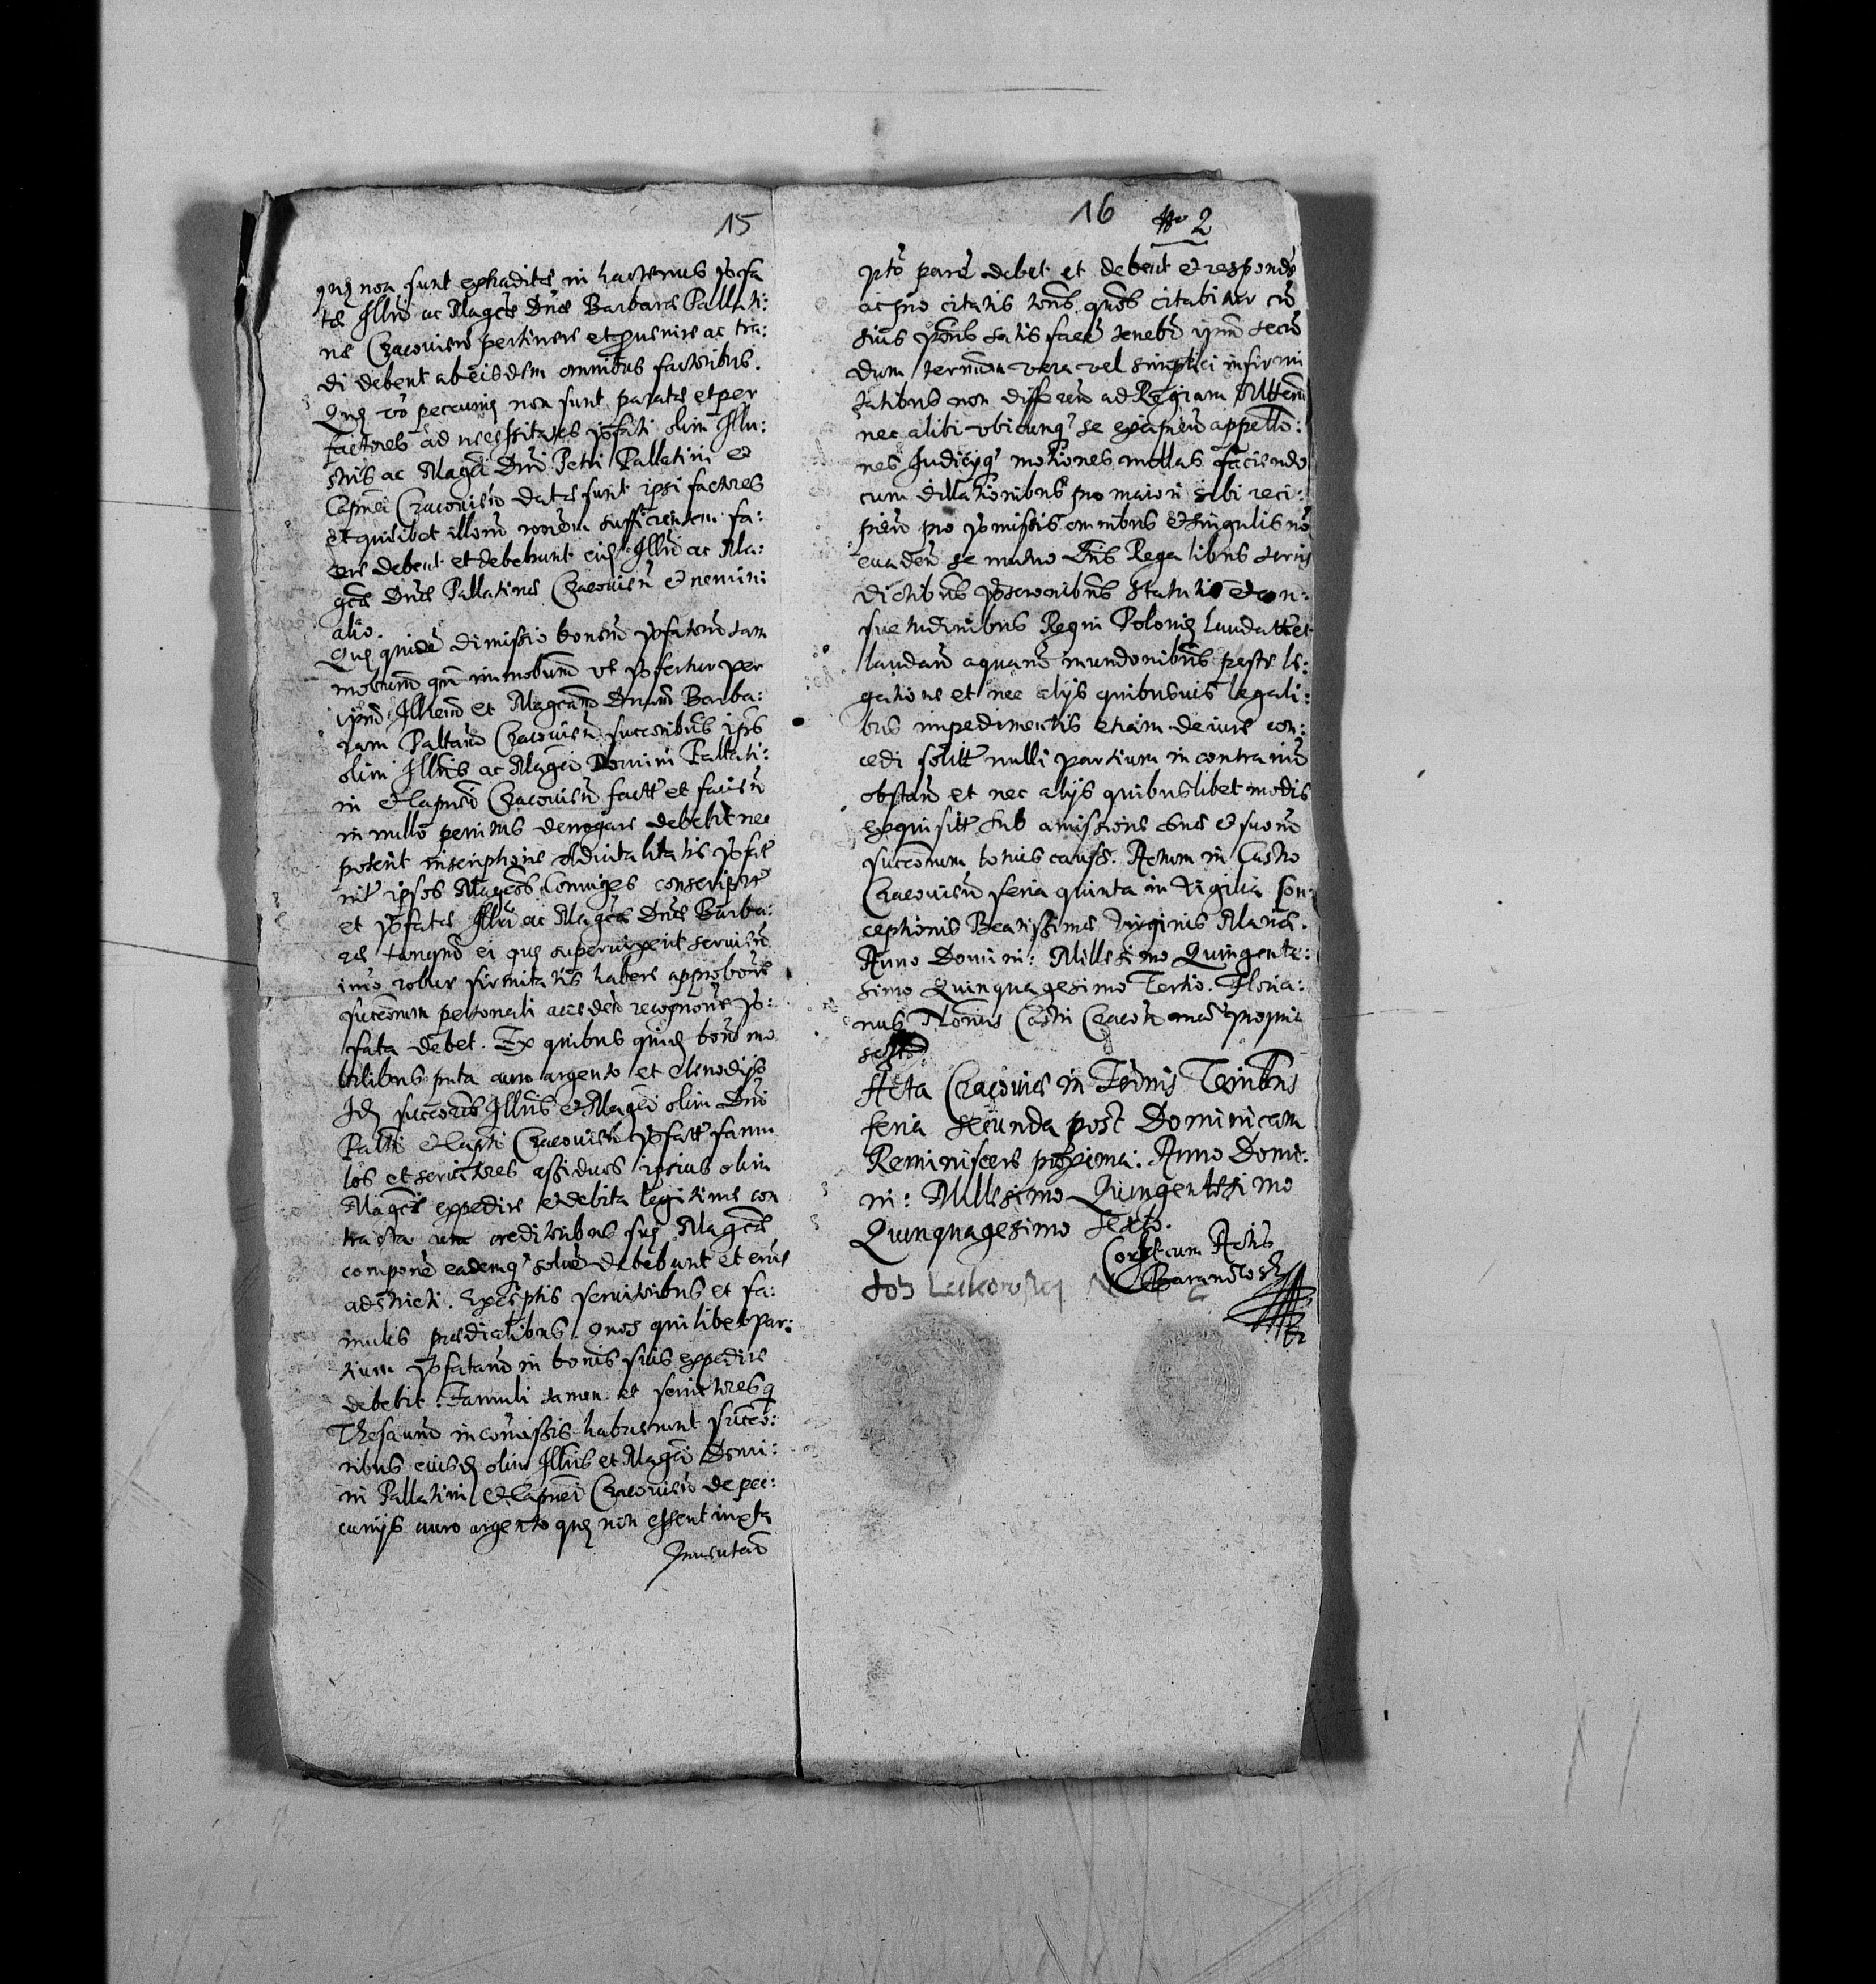 15
quę non sunt extraditæ in hactenus p̄fa
tæ Illrī ac Magcæ Dnæ Barbaræ Pallati:
næ Cracouien̄ pertinere et puenire ac tra:
di debent ab eisdem omnibus factoribus.
Quę vō pecunię non sunt paratæ et per
factores ad necessitates p̄fati olim Illu:
stris ac Magci Dnī Petri Pallatini et
Capnei Cracouien̄ datæ sunt ipsi factores
et quilibet illorū ronem sufficientem fa:
cere debent et debebunt eidē Illrī ac Ma:
gcæ Dnæ Pallatinæ Cracouien̄ et nemini
alio.
Quę quidē dimissio bonorū p̄fatorū tam
mobiliū qm̄ immobiliū vt p̄fertur per
ipm̄ Illrem̄ et Magcam̄ Dnam̄ Barba:
ram Paltnam̄ Cracouien̄ succoribus ipīs
olim Illris ac Magci Domini Pallati:
ni et Capnei Cracouien̄ factæ et facien̄
in nullo penitus derogare debebit nec
poterit inscriptione aduitalitatis p̄fatæ
int̄ ipsos Magcos Coniuges conscriptæ
et p̄fatæ Illrī ac Magcæ Dnæ Barba:
ræ tanqm̄ ei quę superuixerit seruien̄
imo robur firmitatis habere approbone
succorum personali acceden̄ recognone p̄:
fata debet. Ex quibus quidē bonis mo
bilibus puta auro argento et clenodijs
Idē succores Illris et Magci olim Dnī
Paltni et Capnei Cracouien̄ p̄fati famu
los et seruitores assiduos ipsius olim
Magcī expedire et debita legitime con
tracta creditoribus suę Magcæ
componere eademq solue debebunt et erūt
adstricti. Exceptis seruitoribus et fa:
mulis prædialibus quos quilibet par:
tium p̄fatarū in bonis suis expedire
debebit. Famuli tamen et seruitores q
Thesaurū in comissis habuerunt succo:
ribus eiusdē olim Illris et Magci Domi:
ni Pallatini et Capnei Cracouien̄ de pec:
cunijs auro argento quę non essent iuxta
Inuentariū
16 No 2
parē debet et debent et respondē
ac pro citatis quos citabitur
satisfacē tenebr̄
dum terminum vera vel simplici infirmi
tatibus non differen̄ ad Regiam Mttem̄
nec alibi vbicunq se eximen̄ appello:
nes Iudicyq motiones nullas faciendo
cum dillationibus pro maiori sibi reci:
pien̄ pro p̄missis omnibus et singulis nō
euaden̄ se Regalibus terris
statutis et con:
suetudinibus Regni Polonię laudatis et
laudan̄ aquarū inundonibus peste le:
gatione et nec alijs quibusuis legali:
bus impedimentis etiam de iure con:
cedi solitis nulli partium in contrariū
obstan̄ et nec alijs quibuslibet modis
exquisitis sub amissione suæ et suorū
succorum totius causæ. Actum in Castro
Cracouien̄ feria quinta in Vigilia Con:
ceptionis Beatissimæ Virginis Mariæ.
Anno Domini: Millesimo Quingente:
simo Quinquagesimo Tertio. Floria:
nus Notrius Castri Cracoh manu propria
scripst
Acta Cracouiæ in Trinis Terribus
feria secunda post Dominicam
Reminiscere proxima: Anno Domi:
ni: Millesimo Quingentesimo
Quinquagesimo Sexto.
Corxt cum Actis